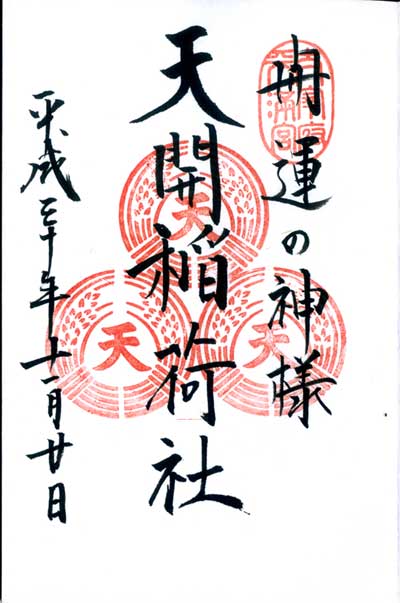 開運の神様
天開稲荷社
平成三十年十一月廿日
天
天
天